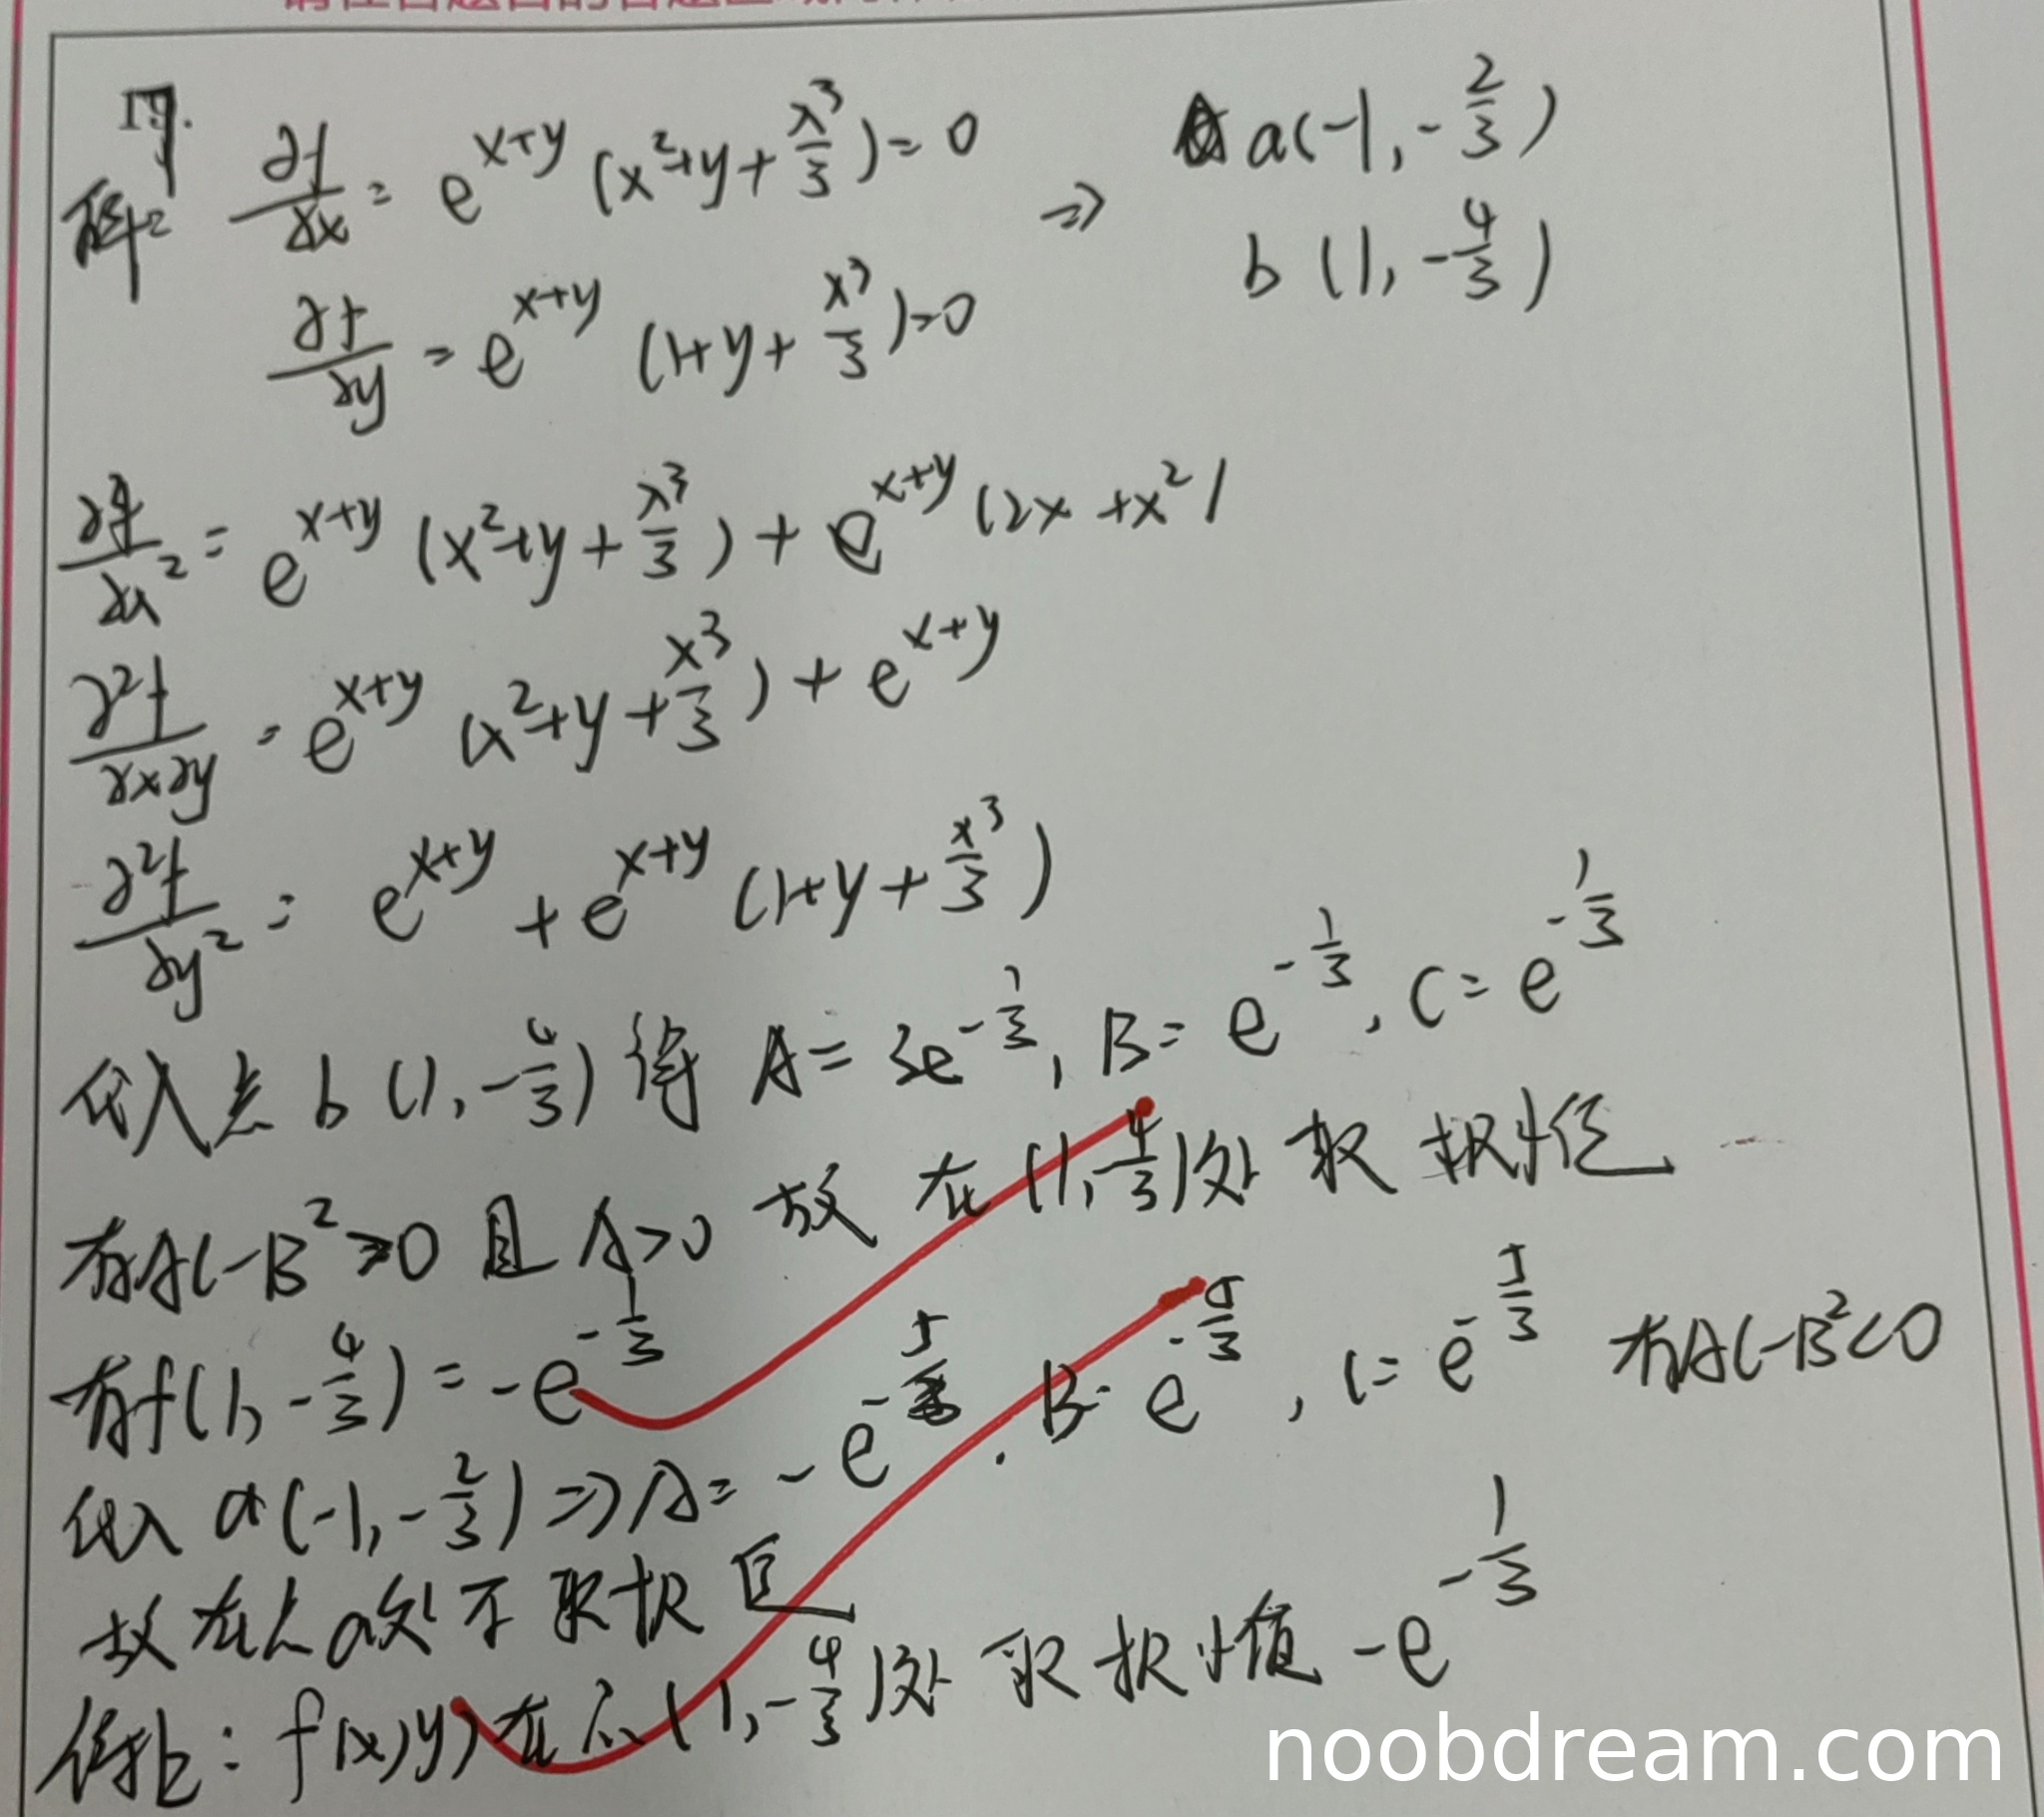 17.
解: ∂f/∂x = e^{x+y} (x²+y+x³/3) = 0 ⇒ a(-1, -2/3)
∂f/∂y = e^{x+y} (1+y+x³/3) = 0 b(1, -4/3)
∂²f/∂x² = e^{x+y} (x²+y+x³/3) + e^{x+y} (2x+x²)
∂²f/∂x∂y = e^{x+y} (x²+y+x³/3) + e^{x+y}
∂²f/∂y² = e^{x+y} + e^{x+y} (1+y+x³/3)
代入点 b(1, -4/3) 得 A = 3e^{-1/3}, B = e^{-1/3}, C = e^{-1/3}
有AC-B²>0 且 A>0 故 在(1, -4/3)处 取 极小值
有f(1, -4/3) = -e^{-1/3}
代入 a(-1, -2/3) ⇒ A = -e^{-5/3}. B = e^{-5/3}, C = e^{-5/3} 有AC-B²<0
故在点a处不取极值
综上: f(x,y)在点(1, -4/3)处 取极小值 -e^{-1/3}
noobdream.com